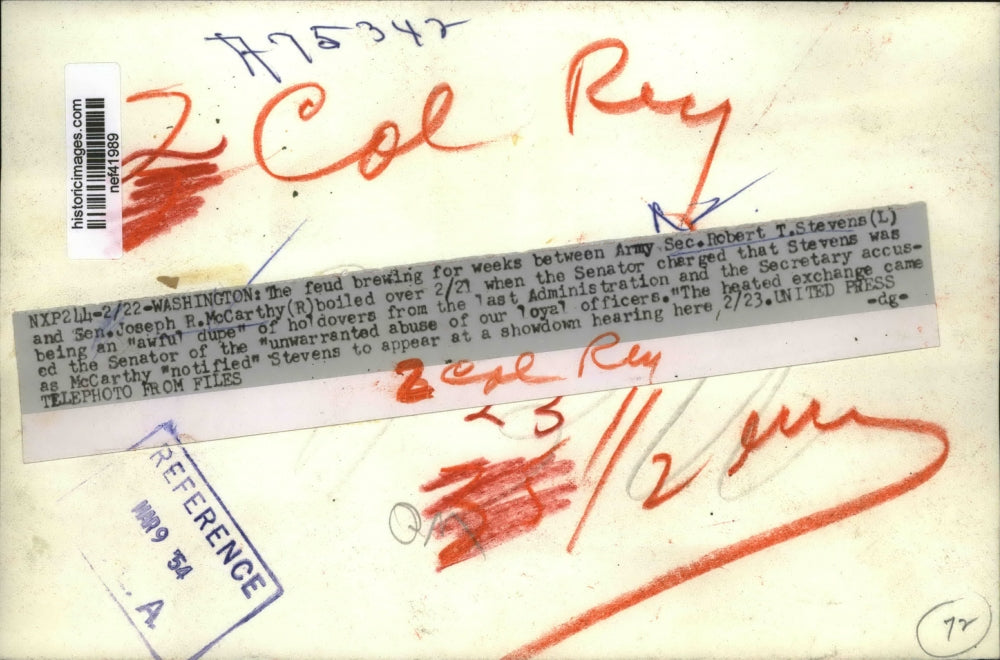 A75342
2 Col Rey
historicimages.com
nef41989
NXP244-2/22-WASHINGTON: The feud brewing for weeks between Army Sec.Robert T.Stevens(L)
and Sen.Joseph R.McCarthy(R)boiled over 2/21 when the Senator charged that Stevens was
being an "awful dupe" of holdovers from the last Administration and the Secretary accus-
ed the Senator of the "unwarranted abuse of our loyal officers."The heated exchange came
as McCarthy "notified" Stevens to appear at a showdown hearing here 2/23.UNITED PRESS
TELEPHOTO FROM FILES -dg-
2 col Rey
REFERENCE
MAR 9 '54
A
72